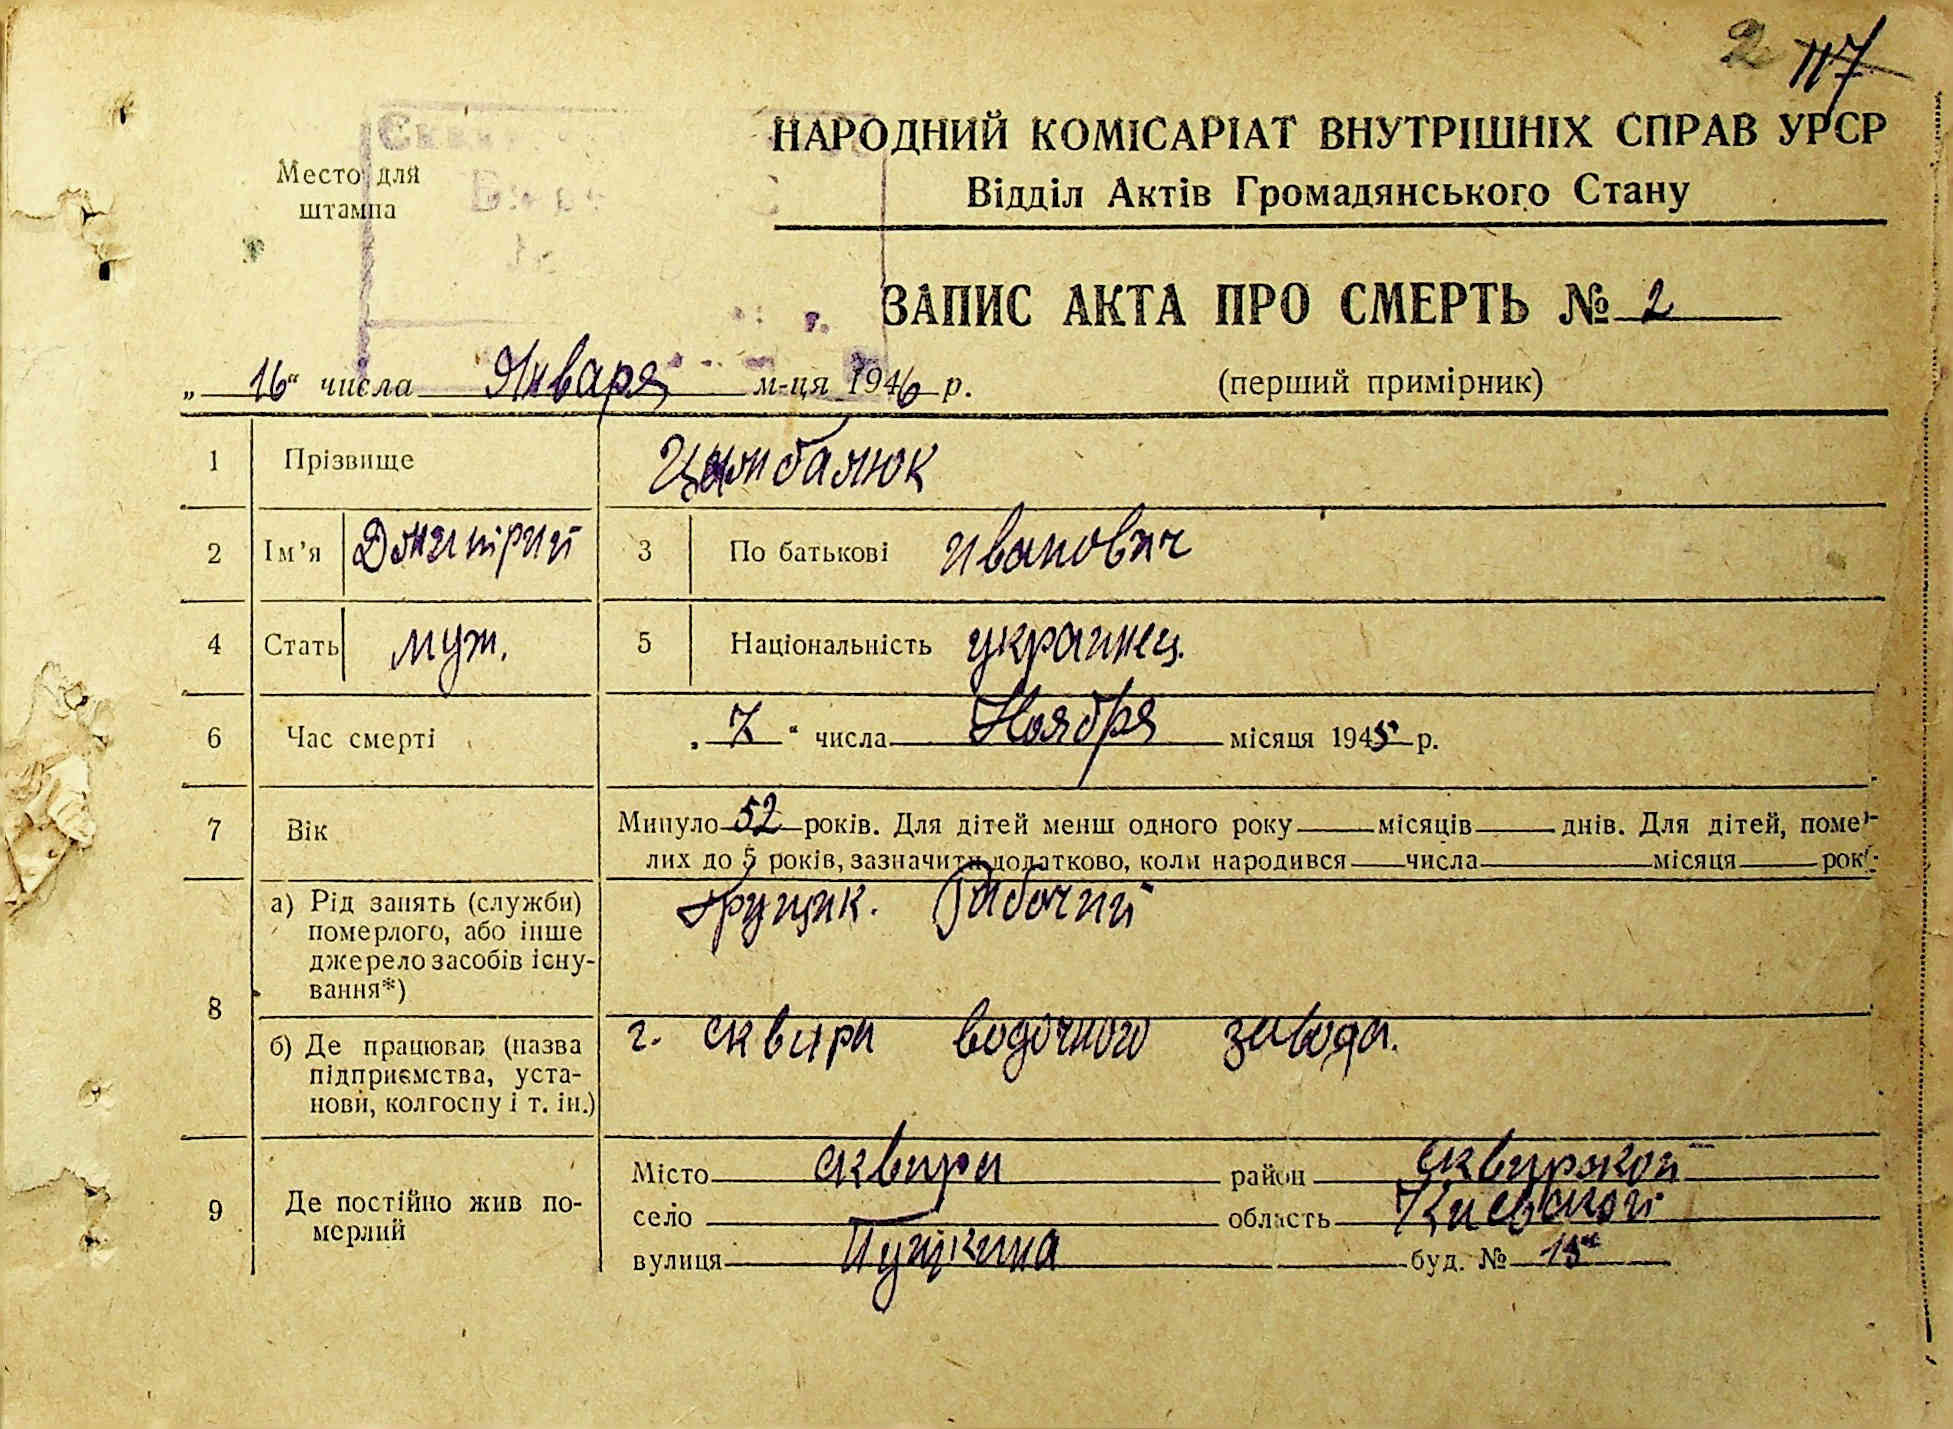 2 117
НАРОДНИЙ КОМІСАРІАТ ВНУТРІШНІХ СПРАВ УРСР
Место для
штампа
Відділ Актів Громадянського Стану
ЗАПИС АКТА ПРО СМЕРТЬ № 2
„ 16 “ числа Января м-ця 1946 р.
(перший примірник)
1 Прізвище Цымбалюк
2 Ім'я Дмитрий 3 По батькові Иванович
4 Стать муж. 5 Національність украинец.
6 Час смерті „ 7 “ числа Ноября місяця 1945 р.
7 Вік Минуло 52 років. Для дітей менш одного року місяців днів. Для дітей, поме-
лих до 5 років, зазначити додатково, коли народився числа місяця рок
8 а) Рід занять (служби)
померлого, або інше
джерело засобів існу-
вання*)
Грущик. Рабочий
б) Де працював (назва
підприємства, уста-
нови, колгоспу і т. ін.)
г. сквира водочного завода.
9 Де постійно жив по-
мерлий
Місто сквира район сквирской
село область Киевской
вулиця Пушкина буд. № 15